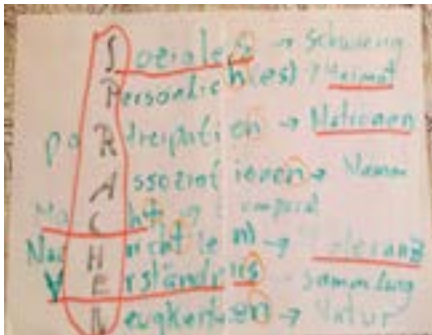 Soziales → Schwung
Persönlich(es) Heimat
partizipation → Nationen
Assoziationen → Namen
Macht →
Nachricht(en) → Toleranz
Verständnis sammlung
Neugkeiten → Natur